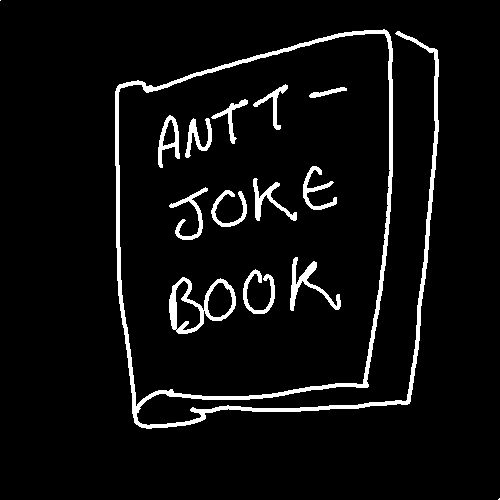 ANTT-
JOKE
BOOK